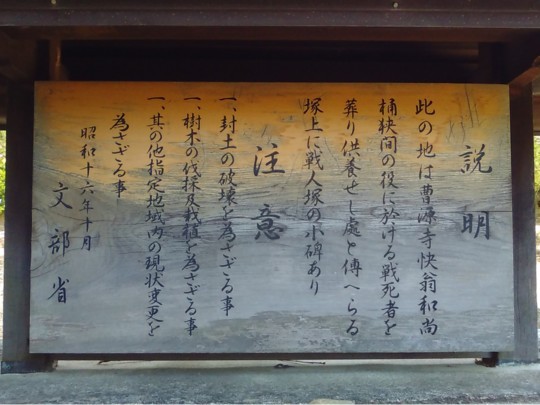 説明
此の地は曹源寺快翁和尚
桶狹間の役に於ける戦死者を
葬り供養せし處と傳へらる
塚上に戦人塚の小碑あり
注意
一、封土の破壊を為さざる事
一、樹木の伐採及栽植を為さざる事
一、其の他指定地域内の現状変更を
為さざる事
昭和十六年十月
文部省